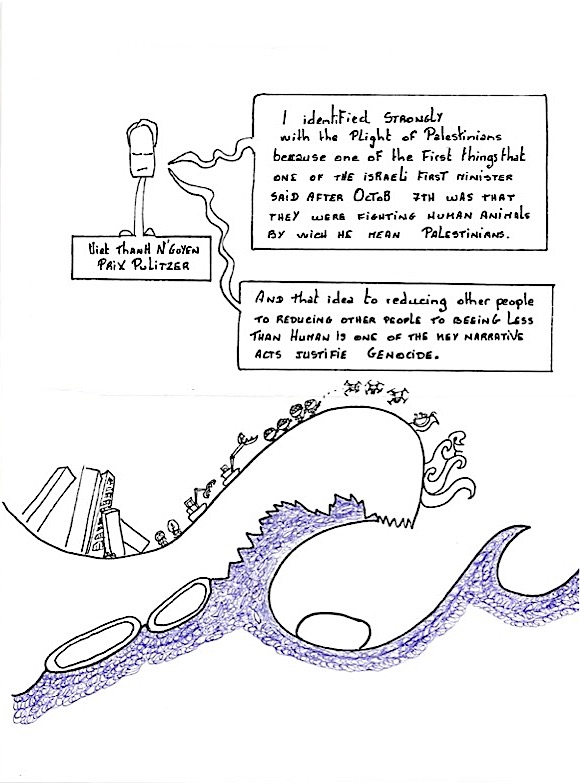 I identified STRONGLY
with the Plight of Palestinians
because one of the First things that
ONE OF THE ISRAELI FIRST MINISTER
SAID AFTER OCTOB 7TH WAS THAT
THEY WERE FIGHTING HUMAN ANIMALS
BY WICH HE MEAN PALESTINIANS.
Viet THANH N'GOYEN
PRIX PULITZER
AND that idea to reducing other people
TO REDUCING OTHER PEOPLE TO BEEING LESS
THAN HUMAN IS ONE OF THE KEY NARRATIVE
ACTS JUSTIFIE GENOCIDE.